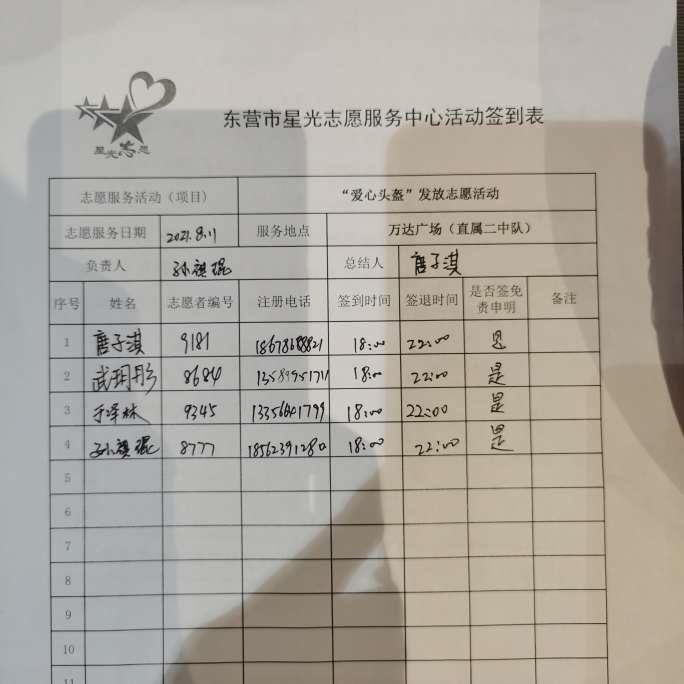 星光志愿
东营市星光志愿服务中心活动签到表
志愿服务活动（项目） “爱心头盔”发放志愿活动
志愿服务日期 2021.8.11 服务地点 万达广场（直属二中队）
负责人 孙祺琨 总结人 唐子淇
序号 姓名 志愿者编号 注册电话 签到时间 签退时间 是否签免责申明 备注
1 唐子淇 9181 18:00 22:00 是
2 武玥彤 8684 18:00 22:00 是
3 于泽林 9345 18:00 22:00 是
4 孙祺琨 8777 18562391280 18:00 22:00 是
5
6
7
8
9
10
11